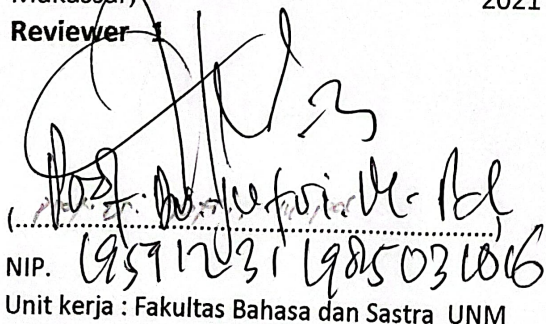 2021
Reviewer 1
Prof. Dr. Jufri. M. Pd
NIP. 19591231 198503 1016
Unit kerja : Fakultas Bahasa dan Sastra UNM